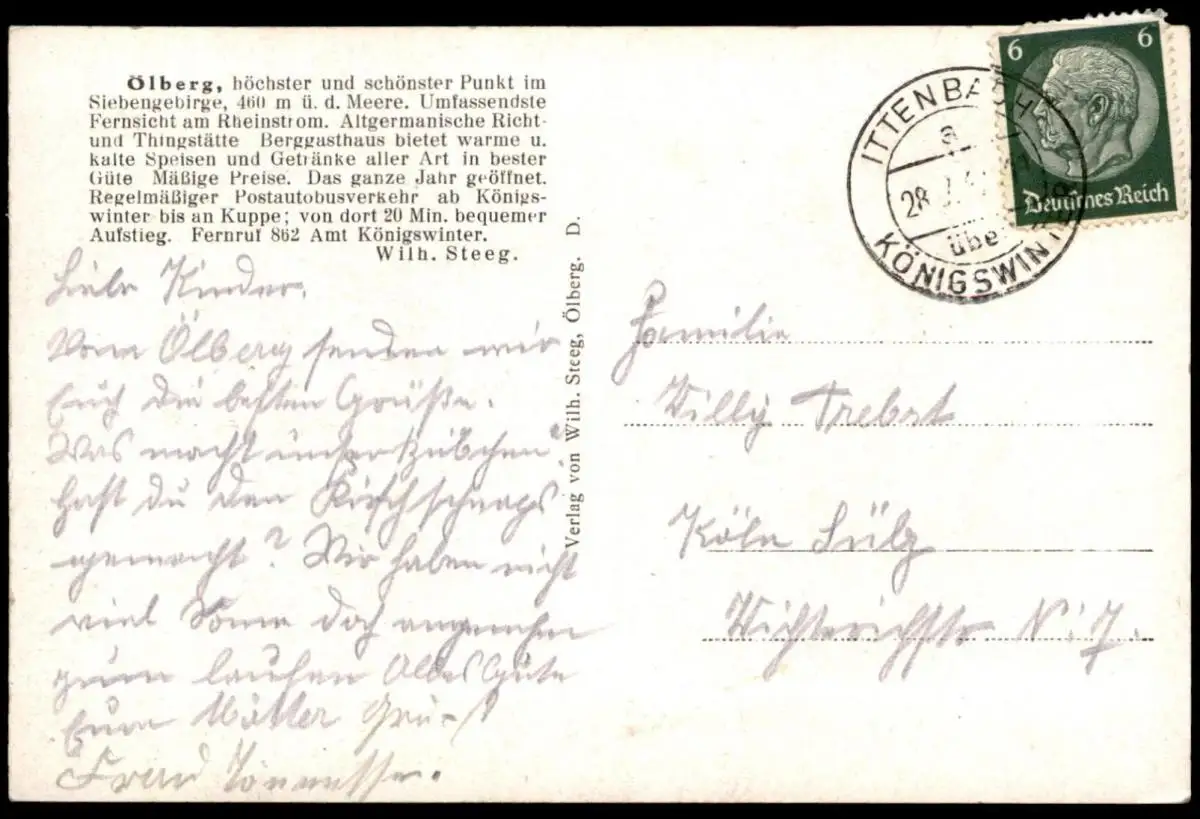 Ölberg, höchster und schönster Punkt im
Siebengebirge, 460 m ü. d. Meere. Umfassendste
Fernsicht am Rheinstrom. Altgermanische Richt-
und Thingstätte Berggasthaus bietet warme u.
kalte Speisen und Getränke aller Art in bester
Güte Mäßige Preise. Das ganze Jahr geöffnet.
Regelmäßiger Postautobusverkehr ab Königs-
winter bis an Kuppe; von dort 20 Min. bequemer
Aufstieg. Fernruf 862 Amt Königswinter.
Wilh. Steeg.
Liebe Kinder.
Vom Ölberg senden wir
Euch die besten Grüße.
Was macht unser
hast du den Kirschschnaps
gemacht? Wir haben nicht
viel Sonne doch angenehm
zum laufen Alles Gute
Eure Mutter Gruß
Frau
Verlag von Wilh. Steeg, Ölberg. D.
ITTENBACH
a
28
über
KÖNIGSWINTER
6 6
Deutsches Reich
Familie
Willy Trebst
Köln Sülz
Wichterichstr N: 7.